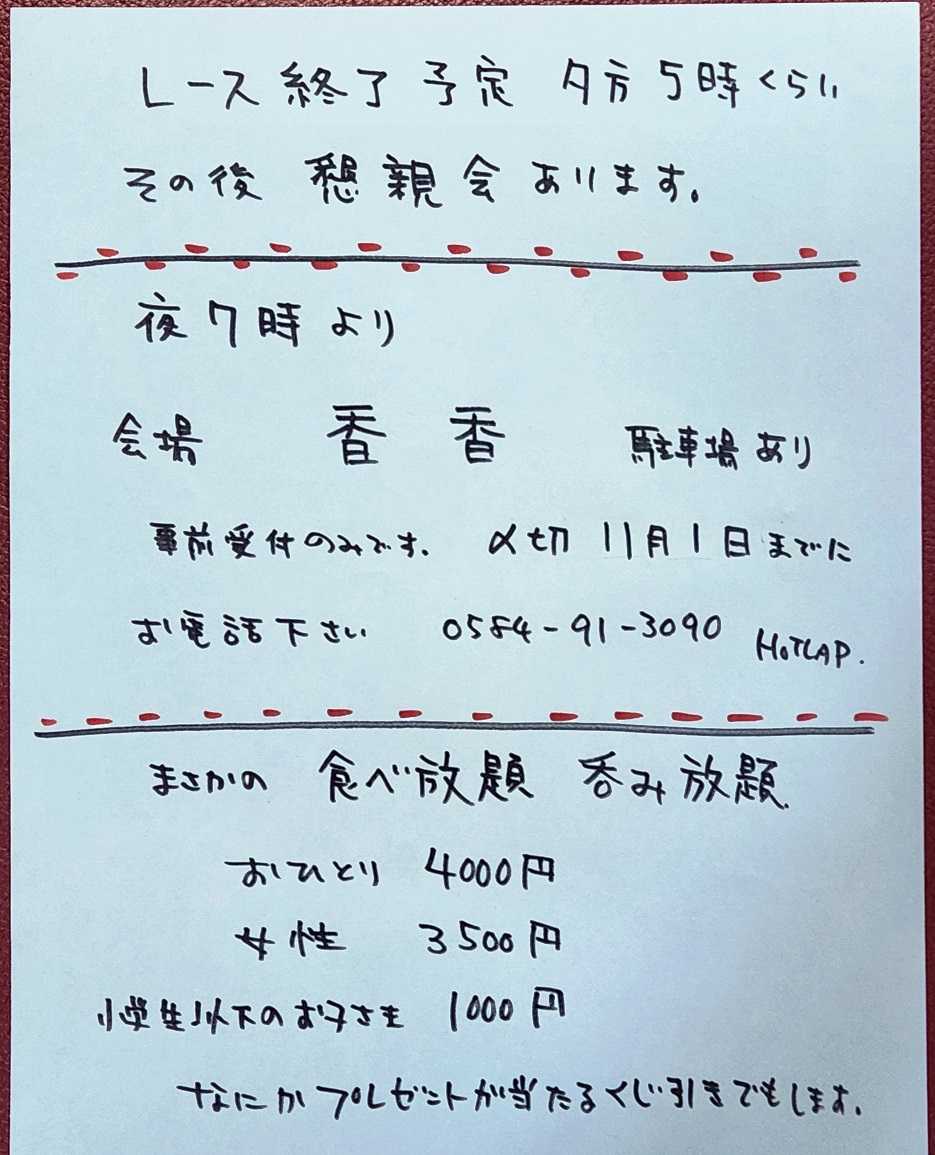 レース終了予定 夕方5時くらい
その後 懇親会あります。
夜7時より
会場 香香 駐車場あり
事前受付のみです。 〆切 11月1日までに
お電話下さい 0584-91-3090 HOTLAP.
まさかの 食べ放題 呑み放題
おひとり 4000円
女性 3500円
小学生以下のお子さま 1000円
なにかプレゼントが当たるくじ引きでもします。